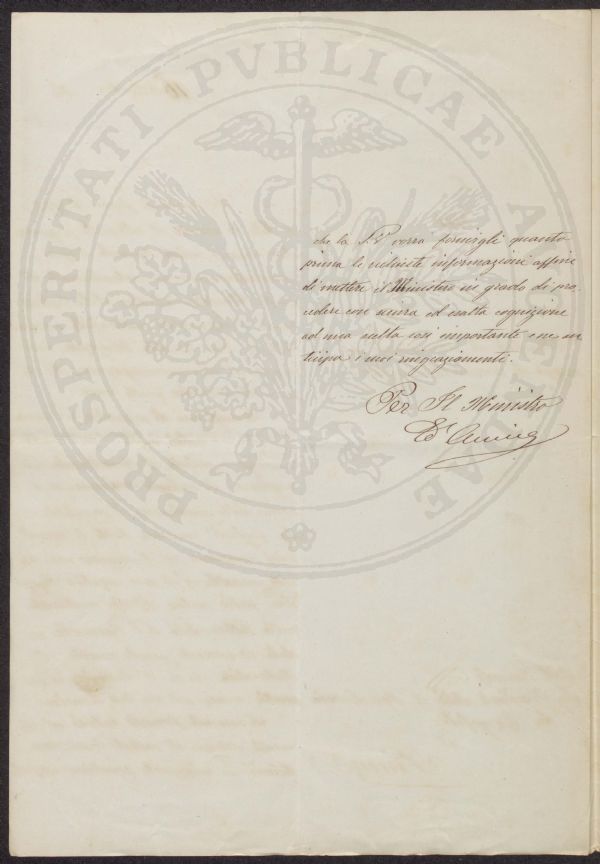 PROSPERITATI PVBLICAE AVGENDAE
che la S. V. vorrà fornirgli quanto
prima le richieste informazioni affine
di mettere il Ministero in grado di pro
cedere con sicura ed esatta cognizione
ad una scelta così importante e ne an
ticipa i suoi ringraziamenti.
Per Il Ministro